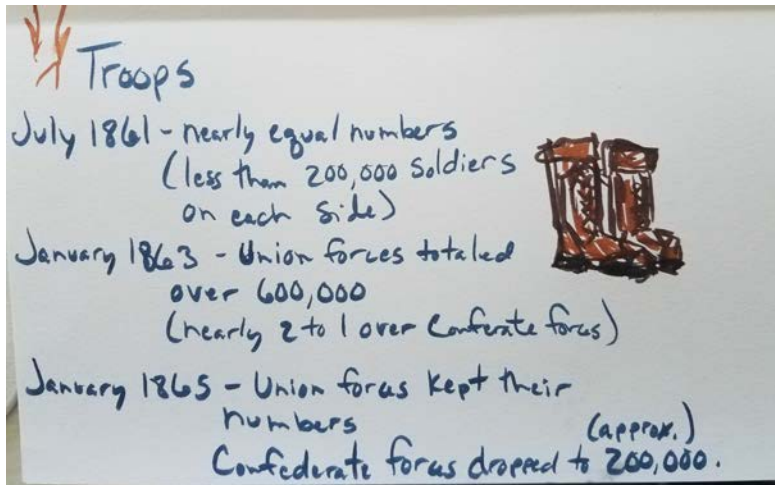 Troops
July 1861 - nearly equal numbers
(less than 200,000 Soldiers
on each side)
January 1863 - Union forces totaled
over 600,000
(nearly 2 to 1 over Conferate forces)
January 1865 - Union forces kept their
numbers
(approx.)
Confederate forces dropped to 200,000.